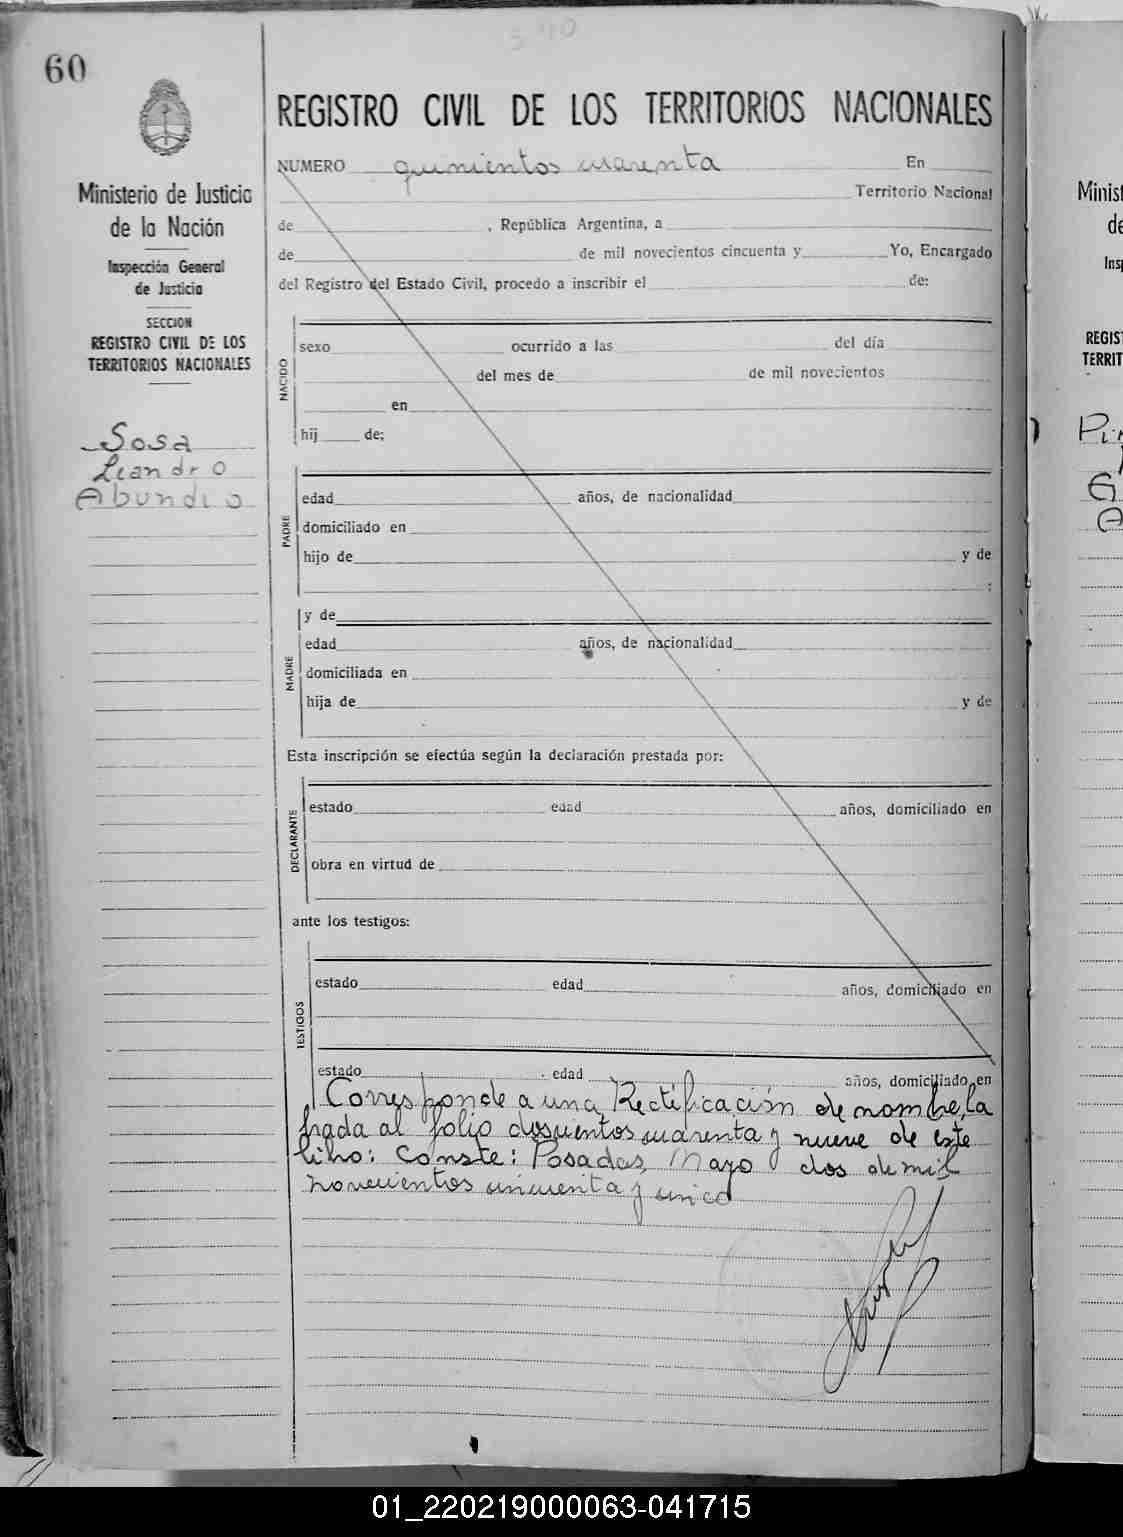 60
Ministerio de Justicia
de la Nación
Inspección General
de Justicia
SECCION
REGISTRO CIVIL DE LOS
TERRITORIOS NACIONALES
Sosa
Leandro
Abundio
540
REGISTRO CIVIL DE LOS TERRITORIOS NACIONALES
NUMERO quinientos cuarenta En
Territorio Nacional
de , República Argentina, a
de de mil novecientos cincuenta y Yo, Encargado
del Registro del Estado Civil, procedo a inscribir el de:
NACIDO
sexo ocurrido a las del día
del mes de de mil novecientos
en
hij de;
PADRE
edad años, de nacionalidad
domiciliado en
hijo de y de
;
MADRE
y de
edad años, de nacionalidad
domiciliada en
hija de y de
Esta inscripción se efectúa según la declaración prestada por:
DECLARANTE
estado edad años, domiciliado en
obra en virtud de
ante los testigos:
TESTIGOS
estado edad años, domiciliado en
estado edad años, domiciliado en
Corresponde a una Rectificación de nombre, la
brada al folio doscientos cuarenta y nueve de este
libro: Conste: Posadas, Mayo dos de mil
novecientos cincuenta y unico
Minist
de
Ins
REGIS
TERRIT
01_220219000063-041715